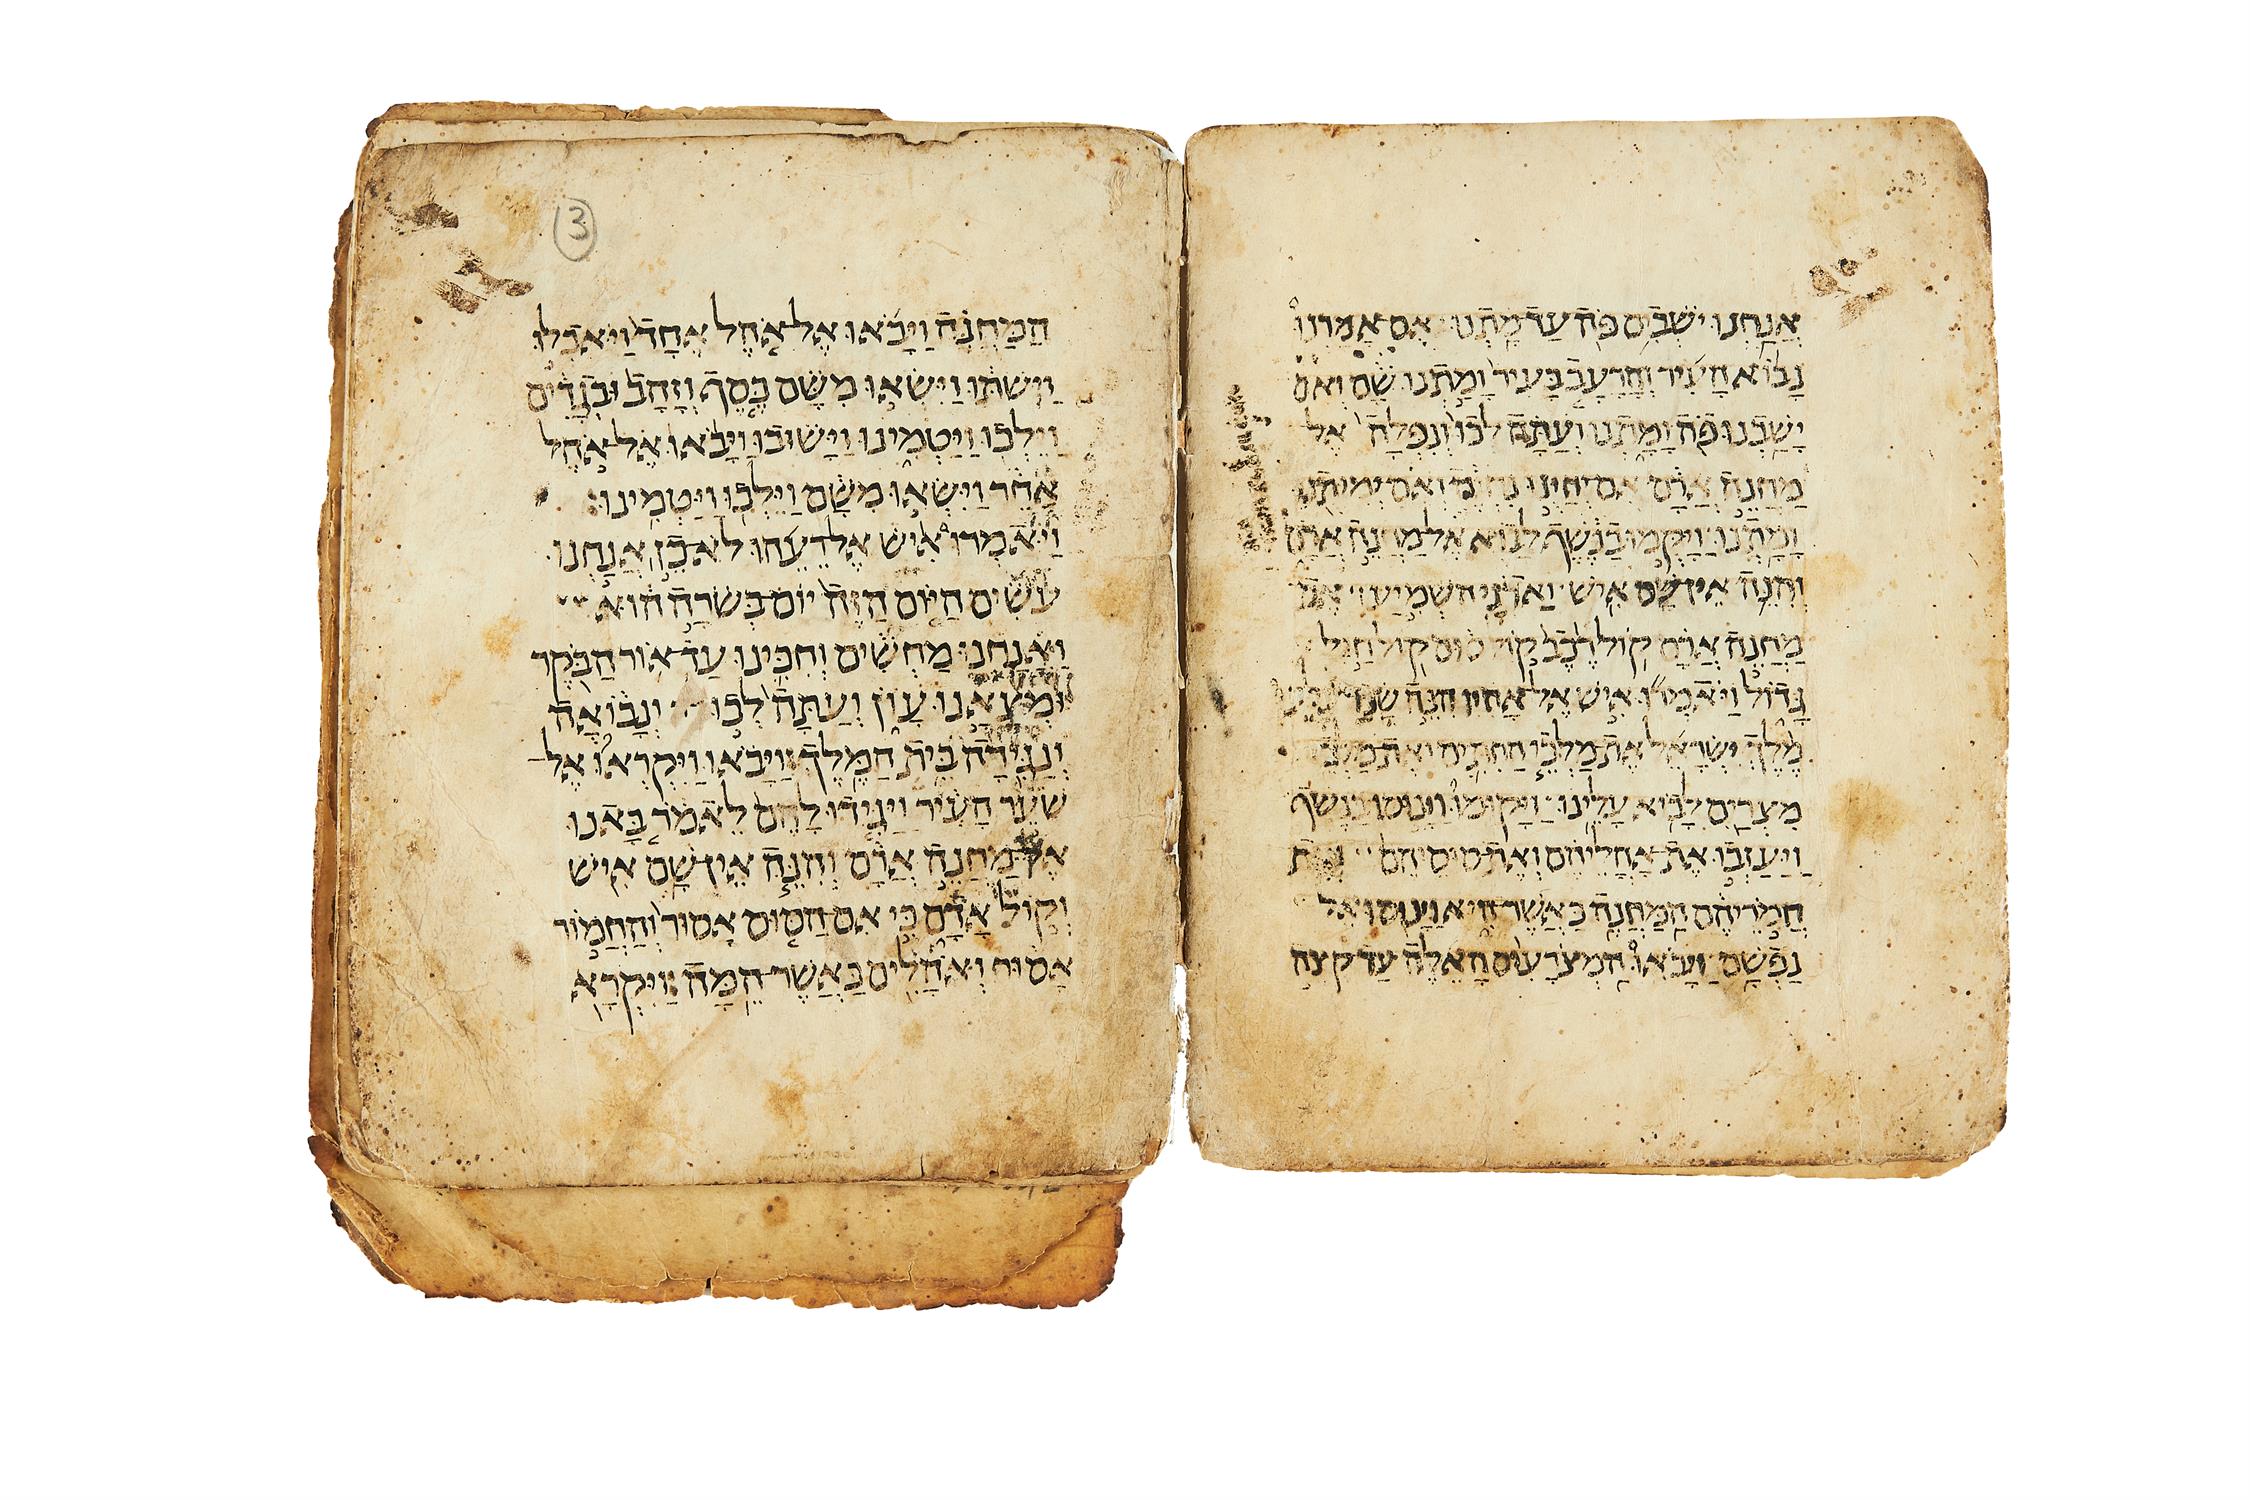 אֲנַחְנוּ יֹשְׁבִים פֹּה עַד מָתְנוּ׃ אִם אָמַרְנוּ
נָבוֹא הָעִיר וְהָרָעָב בָּעִיר וָמַתְנוּ שָׁם וְאִם
יָשַׁבְנוּ פֹה וָמָתְנוּ וְעַתָּה לְכוּ וְנִפְּלָה אֶל
מַחֲנֵה אֲרָם אִם יְחַיֻּנוּ נִחְיֶה וְאִם יְמִיתֻנוּ
וָמָתְנוּ׃ וַיָּקֻמוּ בַנֶּשֶׁף לָבוֹא אֶל מַחֲנֵה אֲרָם
וְהִנֵּה אֵין שָׁם אִישׁ׃ וַאדֹנָי הִשְׁמִיעַ אֶת
מַחֲנֵה אֲרָם קוֹל רֶכֶב קוֹל סוּס קוֹל חַיִל
גָּדוֹל וַיֹּאמְרוּ אִישׁ אֶל אָחִיו הִנֵּה שָׂכַר עָלֵינוּ
מֶלֶךְ יִשְׂרָאֵל אֶת מַלְכֵי הַחִתִּים וְאֶת מַלְכֵי
מִצְרַיִם לָבֹא עָלֵינוּ׃ וַיָּקוּמוּ וַיָּנוּסוּ בַנֶּשֶׁף
וַיַּעַזְבוּ אֶת אָהֳלֵיהֶם וְאֶת סוּסֵיהֶם וְאֶת
חֲמֹרֵיהֶם הַמַּחֲנֶה כַּאֲשֶׁר הִיא וַיָּנֻסוּ אֶל
נַפְשָׁם׃ וַיָּבֹאוּ הַמְצֹרָעִים הָאֵלֶּה עַד קְצֵה
3
הַמַּחֲנֶה וַיָּבֹאוּ אֶל אֹהֶל אֶחָד וַיֹּאכְלוּ
וַיִּשְׁתּוּ וַיִּשְׂאוּ מִשָּׁם כֶּסֶף וְזָהָב וּבְגָדִים
וַיֵּלְכוּ וַיַּטְמִינוּ וַיָּשׁוּבוּ וַיָּבֹאוּ אֶל אֹהֶל
אַחֵר וַיִּשְׂאוּ מִשָּׁם וַיֵּלְכוּ וַיַּטְמִינוּ׃
וַיֹּאמְרוּ אִישׁ אֶל רֵעֵהוּ לֹא כֵן אֲנַחְנוּ
עֹשִׂים הַיּוֹם הַזֶּה יוֹם בְּשֹׂרָה הוּא
וַאֲנַחְנוּ מַחְשִׁים וְחִכִּינוּ עַד אוֹר הַבֹּקֶר
וּמְצָאָנוּ עָוֹן וְעַתָּה לְכוּ וְנָבוֹאָה
וְנַגִּידָה בֵּית הַמֶּלֶךְ׃ וַיָּבֹאוּ וַיִּקְרְאוּ אֶל
שֹׁעֵר הָעִיר וַיַּגִּידוּ לָהֶם לֵאמֹר בָּאנוּ
אֶל מַחֲנֵה אֲרָם וְהִנֵּה אֵין שָׁם אִישׁ
וְקוֹל אָדָם כִּי אִם הַסּוּס אָסוּר וְהַחֲמוֹר
אָסוּר וְאֹהָלִים כַּאֲשֶׁר הֵמָּה׃ וַיִּקְרָא